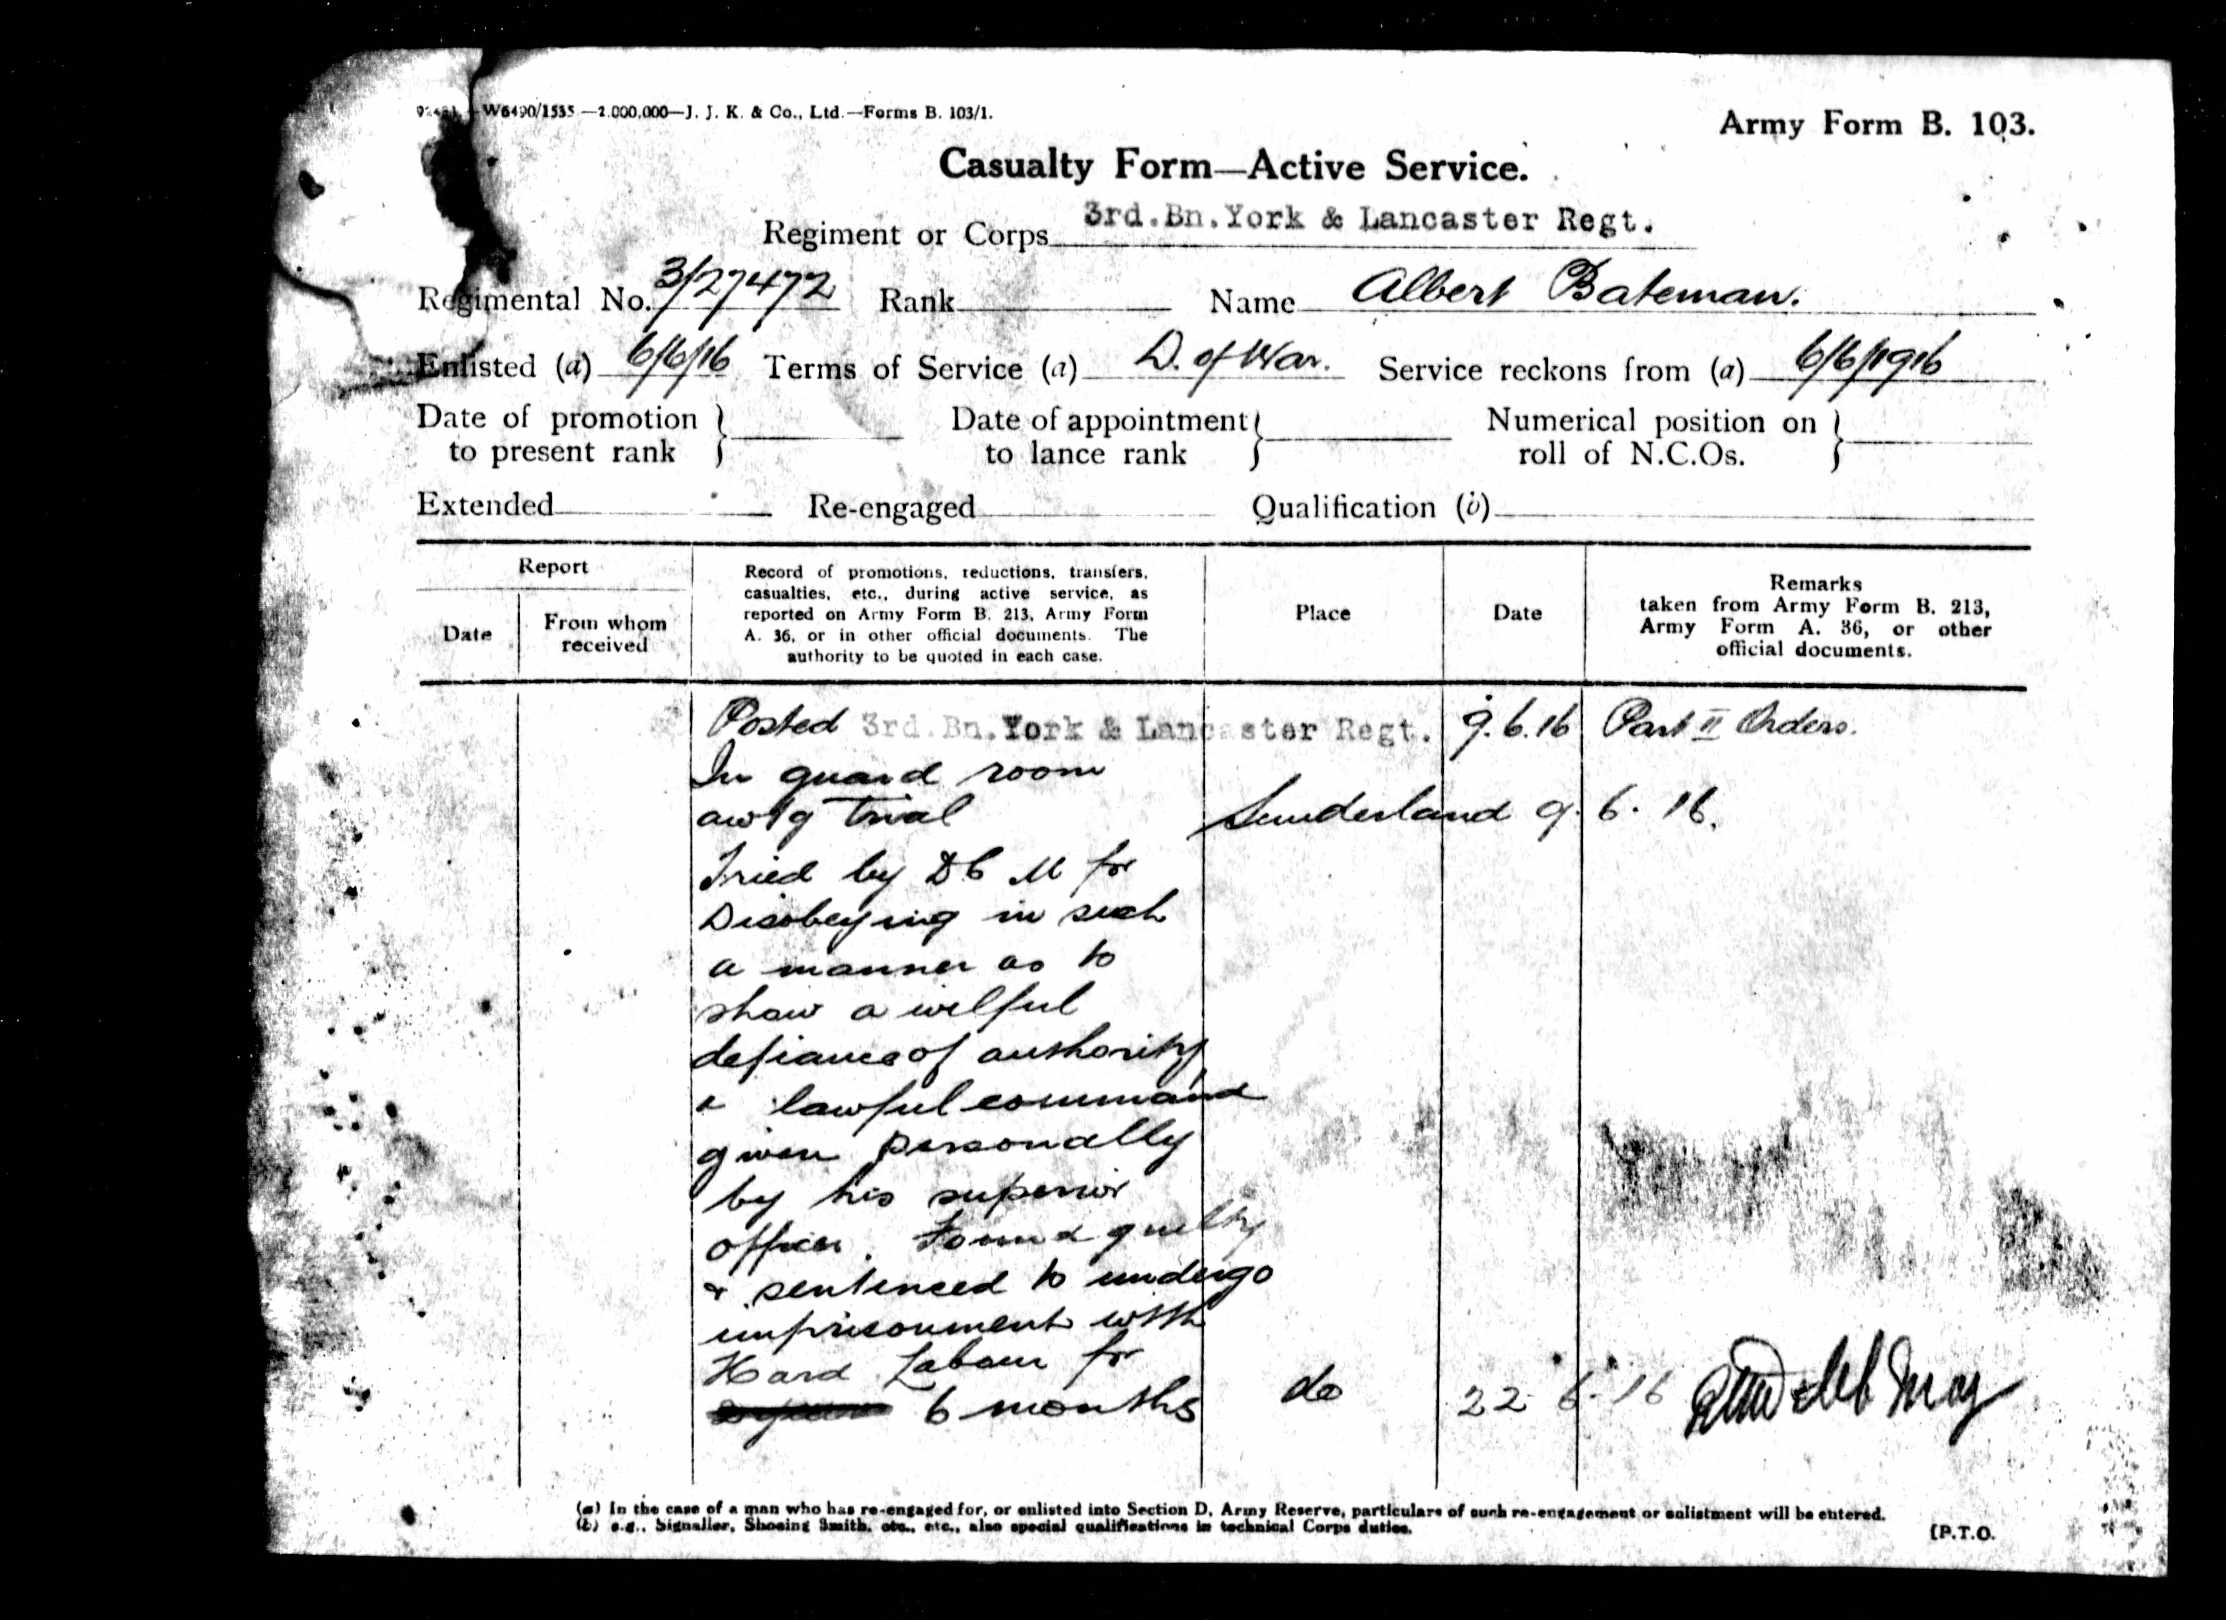 W6490/1535 —2.000,000—J. J. K. & Co., Ltd.—Forms B. 103/1.
Army Form B. 103.
Casualty Form—Active Service.
Regiment or Corps 3rd.Bn.York & Lancaster Regt.
Regimental No. 3/27472 Rank Name Albert Bateman.
Enlisted (a) 6/6/16 Terms of Service (a) D. of War. Service reckons from (a) 6/6/1916
Date of promotion to present rank } Date of appointment to lance rank } Numerical position on roll of N.C.Os. }
Extended Re-engaged Qualification (b)
Report
Date
From whom received
Record of promotions, reductions, transfers,
casualties, etc., during active service, as
reported on Army Form B. 213, Army Form
A. 36, or in other official documents. The
authority to be quoted in each case.
Place
Date
Remarks
taken from Army Form B. 213,
Army Form A. 36, or other
official documents.
Posted 3rd.Bn.York & Lancaster Regt. 9.6.16 Part II Orders.
In guard room
awtg trial Sunderland 9.6.16.
Tried by DCM for
Disobeying in such
a manner as to
show a wilful
defiance of authority
a lawful command
given personally
by his superior
officer. Found guilty
& sentenced to undergo
imprisonment with
Hard Labour for
6 months do 22 6.16
(a) In the case of a man who has re-engaged for, or enlisted into Section D, Army Reserve, particulars of such re-engagement or enlistment will be entered.
(b) e.g., Signaller, Shoeing Smith, etc., etc., also special qualifications in technical Corps duties.
[P.T.O.